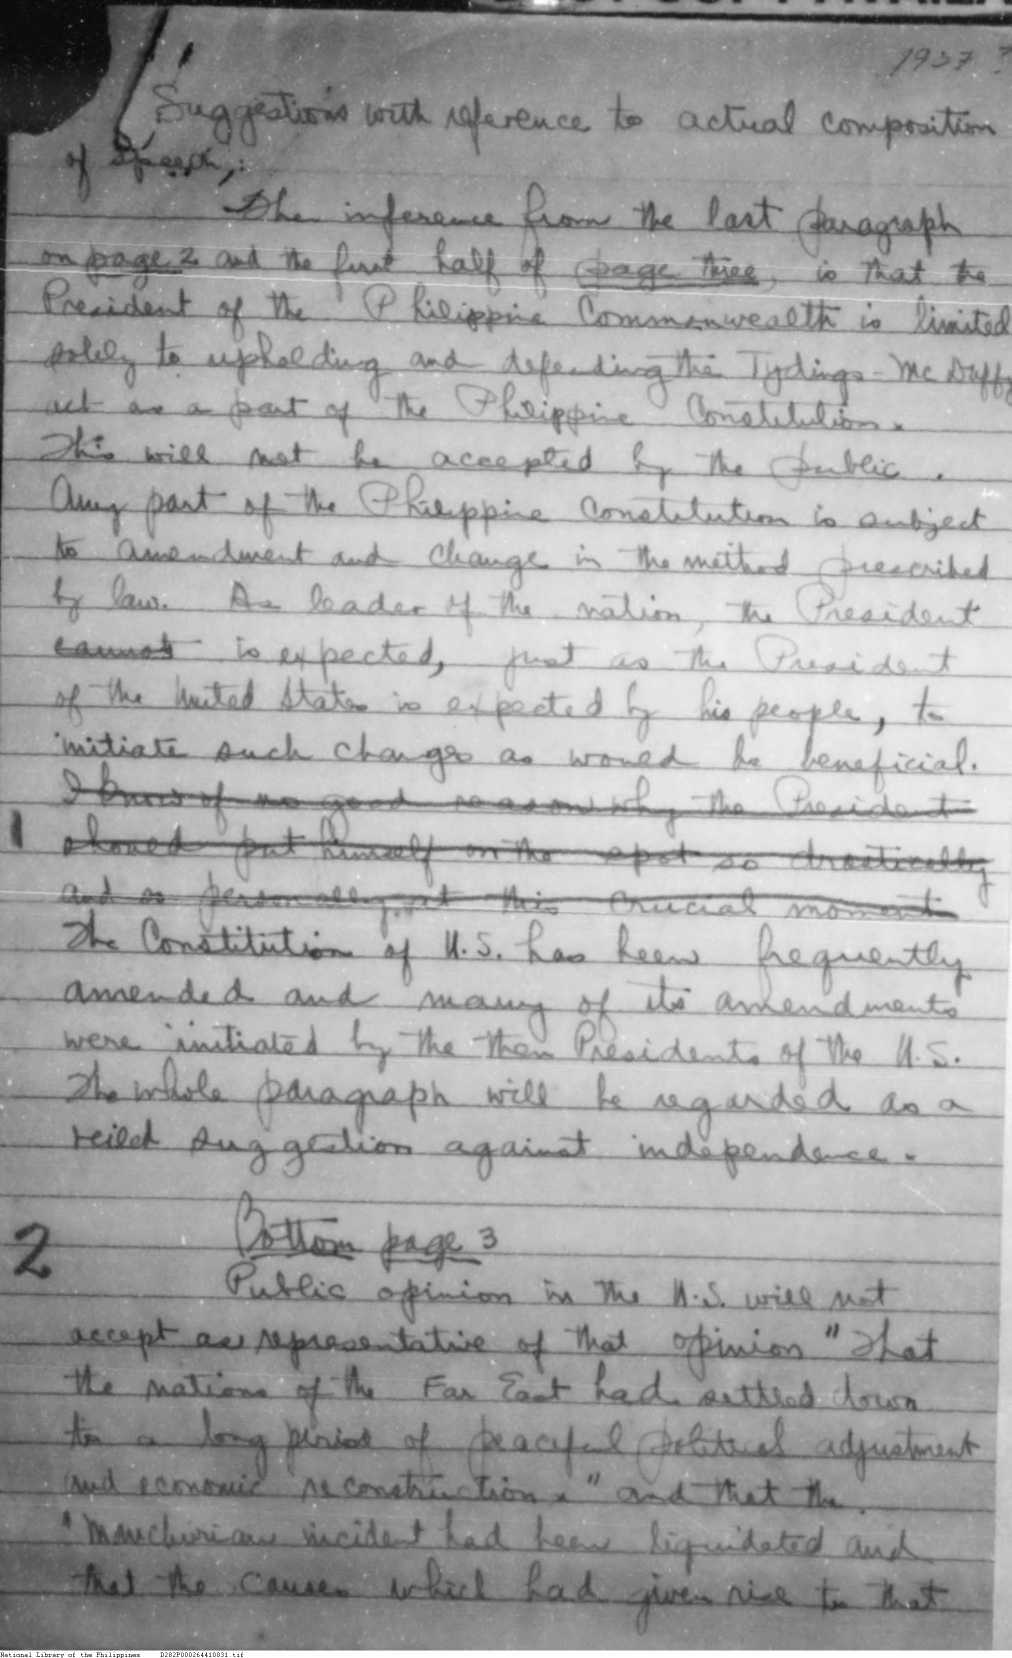 1937?
Suggestions with reference to actual composition
of Speech,:
The inference from the last paragraph
on page 2 and the first half of page three, is that the
President of the Philippine Commonwealth is limited
solely to upholding and defending the Tydings-McDuffy
act as a part of the Philippine Constitution.
This will not be accepted by the public.
Any part of the Philippine Constitution is subject
to amendment and change in the method prescribed
by law. As leader of the nation, the President
cannot is expected, just as the President
of the United States is expected by his people, to
initiate such changes as would be beneficial.
I know of no good reason why the President
should put himself on the spot so drastically
1
and so personally at this crucial moment
The Constitution of U.S. has been frequently
amended and many of its amendments
were initiated by the then Presidents of the U.S.
The whole paragraph will be regarded as a
veiled suggestion against independence.
2
Bottom page 3
Public opinion in the U.S. will not
accept as representative of that opinion "That
the nations of the Far East had settled down
to a long period of peaceful political adjustment
and economic reconstruction." and that the
"Manchurian incident had been liquidated and
that the causes which had given rise to that
National Library of the Philippines D282P000264410831.tif